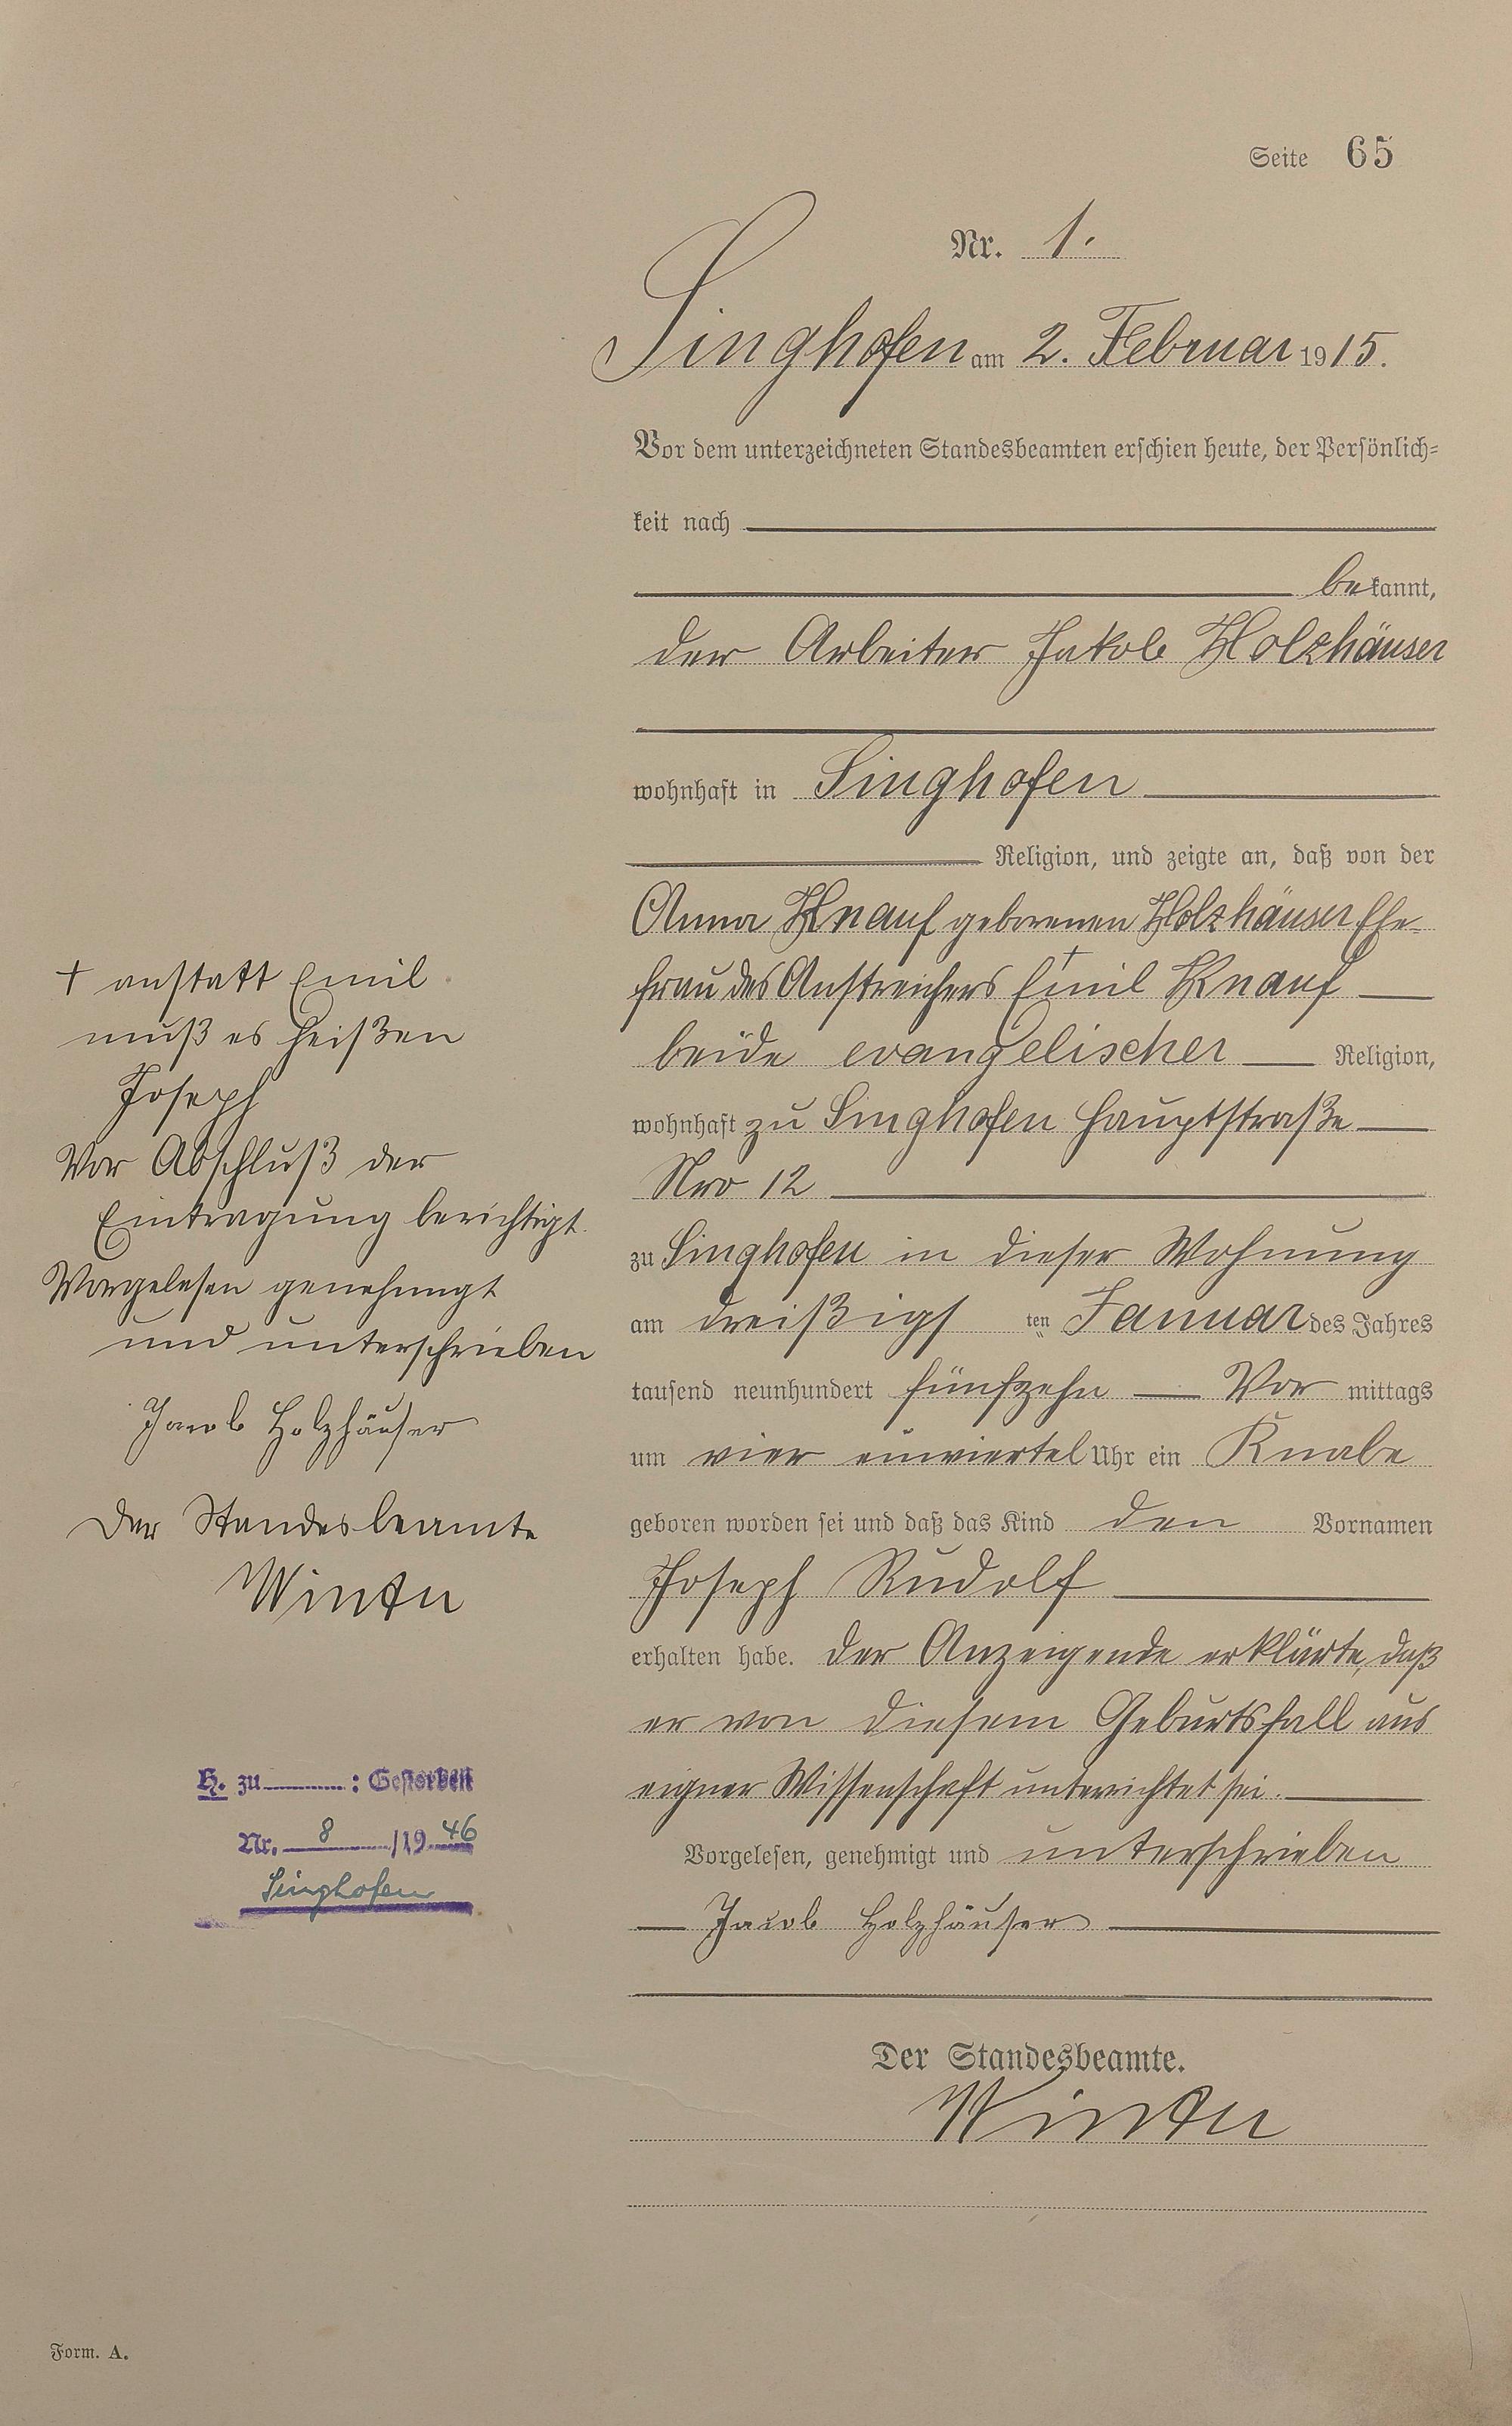 Seite 65
Nr. 1.
Singhofen am 2. Februar 1915.
Vor dem unterzeichneten Standesbeamten erschien heute, der Persönlich-
keit nach
bekannt,
der Arbeiter Jakob Holzhäuser
wohnhaft in Singhofen
Religion, und zeigte an, daß von der
Anna Knauf geborenen Holzhäuser Ehe-
frau des Anstreichers Emil † Knauf
beide evangelischer Religion,
wohnhaft zu Singhofen Hauptstraße
Nro 12
zu Singhofen in dieser Wohnung
am dreißigs ten Januar des Jahres
tausend neunhundert fünfzehn Vor mittags
um vier einviertel Uhr ein Knabe
geboren worden sei und daß das Kind den Vornamen
Joseph Rudolf
erhalten habe. Der Anzeigende erklärte, daß
er von diesem Geburtsfall aus
eigner Wissenschaft unterrichtet sei.
Vorgelesen, genehmigt und unterschrieben
Jacob Holzhäuser
Der Standesbeamte.
Winter
† anstatt Emil
muß es heißen
Joseph
Vor Abschluß der
Eintragung berichtigt.
Vorgelesen genehmigt
und unterschrieben
Jacob Holzhäuser
Der Standesbeamte
Winter
H. zu : Gestorben
Nr. 8 /19 46
Singhofen
Form. A.